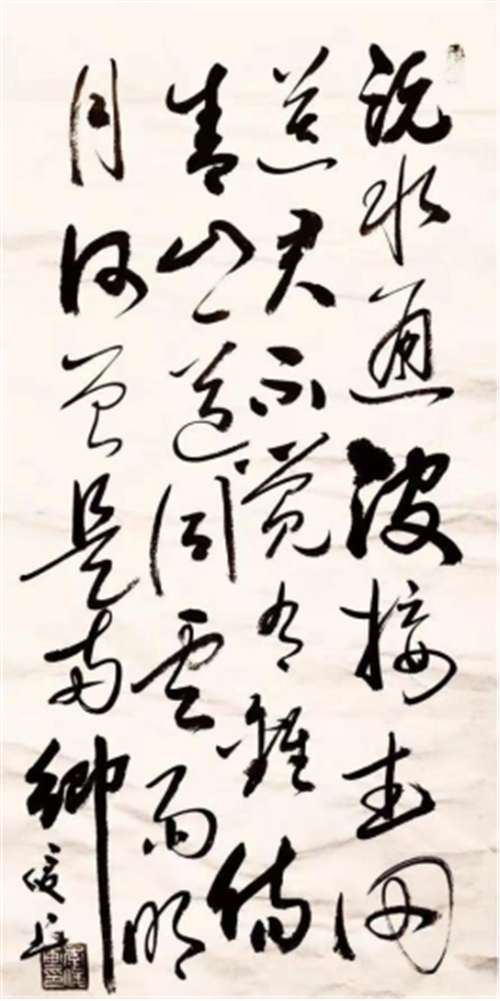 沅水通波接武冈
送君不觉有離傷
青山一道同雲雨明
月何曾是两鄉